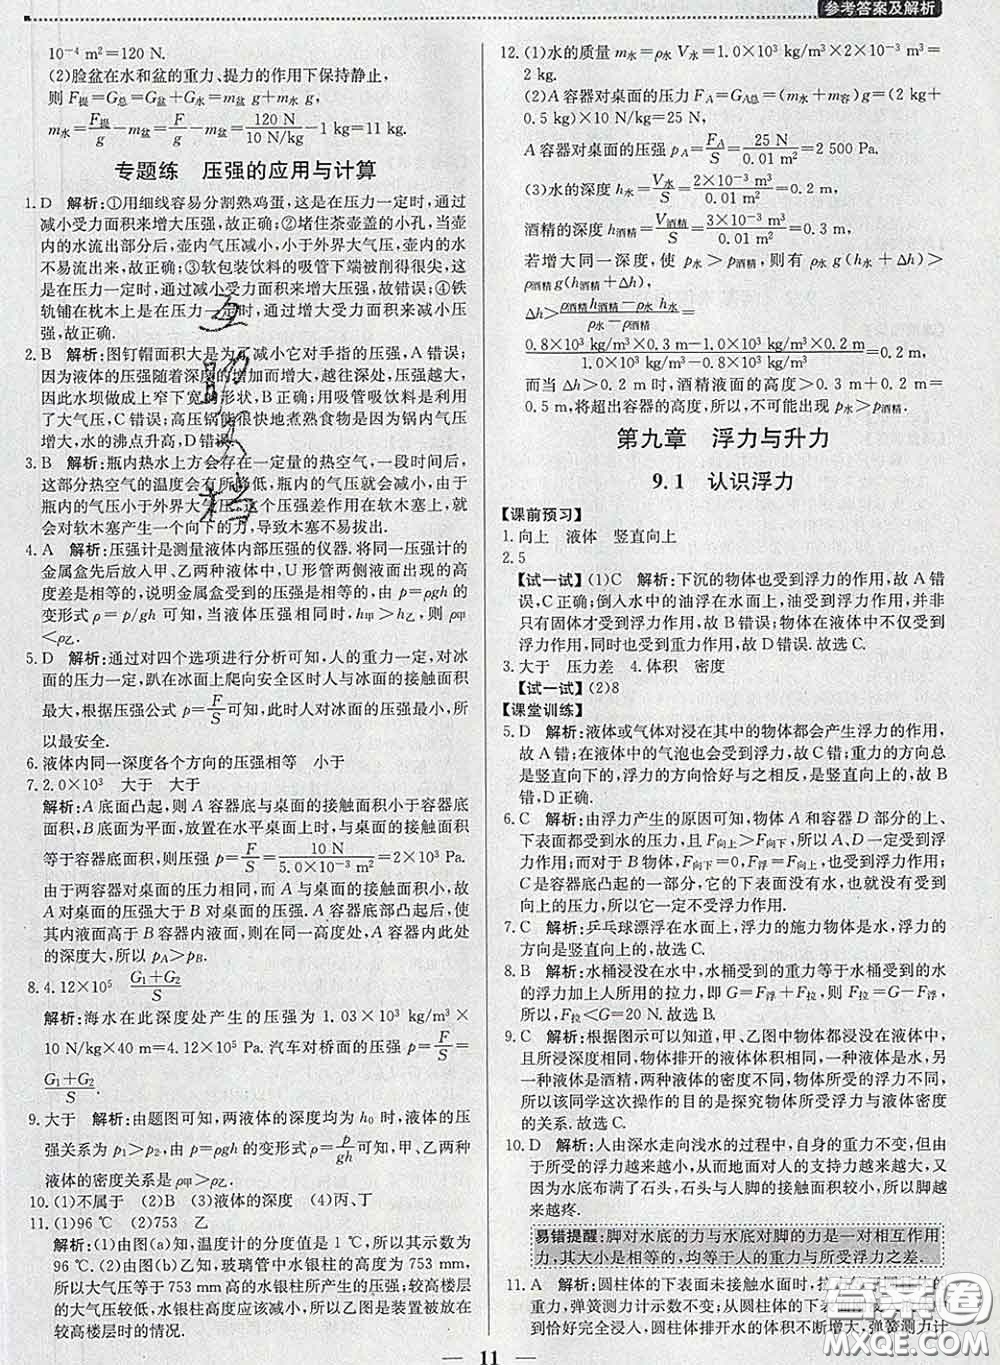 参考答案及解析
10⁻⁴ m²=120 N.
(2)脸盆在水和盆的重力、提力的作用下保持静止,
则 F提=G总=G盆+G水=m盆 g+m水 g,
m水=F提/g-m盆=F/g-m盆=120 N/10 N/kg-1 kg=11 kg.
专题练 压强的应用与计算
1. D 解析:①用细线容易分割熟鸡蛋,这是在压力一定时,通过
减小受力面积来增大压强,故正确;②堵住茶壶盖的小孔,当壶
内的水流出部分后,壶内气压减小,小于外界大气压,壶内的水
不易流出,故正确;③软包装饮料的吸管下端被削得很尖,这是
在压力一定时,通过减小受力面积来增大压强,故错误;④铁
轨铺在枕木上是在压力一定时,增大受力面积来减小压
强,故正确.
2. B 解析:图钉帽面积大是为了减小它对手指的压强,A 错误;
因为液体的压强随着深度的增加而增大,越往深处,压强越大,
因此水坝做成上窄下宽的形状,B 正确;用吸管吸饮料是利用
了大气压,C 错误;高压锅能很快地煮熟食物是因为锅内气压
增大,水的沸点升高,D 错误.
3. B 解析:瓶内热水上方会存在一定量的热空气,一段时间后,
这部分热空气的温度会有所降低,瓶内的气压就会减小,由于
瓶内的气压小于外界大气压,这个压强差作用在软木塞上,
就会对软木塞产生一个向下的力,导致木塞不易拔出.
4. A 解析:压强计是测量液体内部压强的仪器.将同一压强计的
金属盒先后放入甲、乙两种液体中,U 形管两侧液面出现的高
度差是相等的,说明金属盒受到的压强是相等的,由 p=ρgh 的
变形式 ρ=p/gh 可知,当液体压强相同时,h甲>h乙,则 ρ甲
<ρ乙.
5. D 解析:通过对四个选项进行分析可知,人的重力一定,对冰
面的压力一定,趴在冰面上爬向安全区时人与冰面的接触面积
最大,根据压强公式 p=F/S可知,此时人对冰面的压强最小,所
以最安全.
6. 液体内同一深度各个方向的压强相等 小于
7. 2.0×10³ 大于 大于
解析:A 底面凸起,则 A 容器底与桌面的接触面积小于容器底
面积,B 底面为平面,放置在水平桌面上时,与桌面的接触面积
等于容器底面积,则压强 p=F/S=10 N/5.0×10⁻³ m²=2×10³ Pa.
由于两容器对桌面的压力相同,而 A 与桌面的接触面积小,故
A 对桌面的压强大于 B 对桌面的压强.A 容器底部凸起后,使
其内液面高于 B 容器内液面,则在同一高度处,A 容器内该处
的深度大,所以 pA>pB.
8. 4.12×10⁵ G₁+G₂/S
解析:海水在此深度处产生的压强为 1.03×10³ kg/m³×
10 N/kg×40 m=4.12×10⁵ Pa.汽车对桥面的压强为 F/S=
G₁+G₂/S.
9. 大于 解析:由题图可知,两液体的深度均为 h₀ 时,液体的压
强关系为 p₁>p₂,由 p=ρgh 的变形式 ρ=p/gh可知,甲、乙两种
液体的密度关系是 ρ甲>ρ乙.
10. (1)不属于 (2)B (3)液体的深度 (4)丙、丁
11. (1)96 ℃ (2)753 乙
解析:(1)由图(a)知,温度计的分度值是 1 ℃,所以其示数为
96 ℃.(2)由图(b)乙知,玻璃管中水银柱的高度为 753 mm,
所以大气压等于 753 mm 高的水银柱所产生的压强;较高楼层
的大气压较低,水银柱高度应该减小,所以乙图是放置在
较高楼层时的情况.
12. (1)水的质量 m水=ρ水 V水=1.0×10³ kg/m³×2×10⁻³ m³=
2 kg.
(2)A 容器对桌面的压力 FA=GA总=(m水+m容)g=(2 kg+
0.5 kg)×10 N/kg=25 N,
A 容器对桌面的压强 pA=FA/S=25 N/0.01 m²=2 500 Pa.
(3)水的深度 h水=V水/S=2×10⁻³ m³/0.01 m²=0.2 m,
酒精的深度 h酒精=V酒精/S=3×10⁻³ m³/0.01 m²=0.3 m,
若增大同一深度,使 p水>p酒精,则有 ρ水 g(h水+Δh)>
ρ酒精 g(h酒精+Δh)
Δh>ρ酒精h酒精-ρ水h水/ρ水-ρ酒精=
0.8×10³ kg/m³×0.3 m-1.0×10³ kg/m³×0.2 m/1.0×10³ kg/m³-0.8×10³ kg/m³=0.2 m,
而当 Δh>0.2 m 时,酒精液面的高度>0.3 m+0.2 m=
0.5 m,将超出容器的高度,所以,不可能出现 p水>p酒精.
第九章 浮力与升力
9.1 认识浮力
【课前预习】
1. 向上 液体 竖直向上
2. 5
【试一试】(1)C 解析:下沉的物体也受到浮力的作用,故 A 错
误,C 正确;倒入水中的油浮在水面上,油受到浮力作用,并非
只有固体才受到浮力,故 B 错误;物体在液体中不仅受到
浮力作用,同时也受到重力作用,故 D 错误.故选 C.
3. 大于 压力差 4. 体积 密度
【试一试】(2)8
【课堂训练】
5. D 解析:液体或气体对浸在其中的物体都会产生浮力作用,
故 A 错;在液体中的气泡也会受到浮力,故 C 错;重力的方向总
是竖直向下的,浮力的方向恰好与之相反,是竖直向上的,故 B
错,D 正确.故选 D.
6. C 解析:由浮力产生的原因可知,物体 A 和容器 D 部分的上、
下表面都受到水的压力,且 F向上>F向下,所以 A、D 一定受到浮
力作用;而对于 B 物体,F向下=0,F浮=F向上,一定受浮力作用;
C 是容器底凸起的一部分,它的下表面没有水,没有受到向上
的压力,所以,它一定不受浮力作用.
7. C 解析:乒乓球漂浮在水面上,浮力的施力物体是水,浮力的
方向是竖直向上的.故选 C.
8. B 解析:水桶浸没在水中,水桶受到的重力等于水桶受到的水
的浮力加上人所用的拉力,即 G=F浮+F拉,所以 F拉=G-F浮,
所以,F拉<G=20 N.故选 B.
9. C 解析:根据图示可以知道,甲、乙图中物体都浸没在液体中,
且所浸深度相同,物体排开的液体体积相同,一种液体是水,另
一种液体是酒精,两种液体的密度不同,物体所受的浮力不同,
所以该同学这次操作的目的是探究物体所受浮力与液体密度
的关系.故选 C.
10. D 解析:人由深水走向浅水的过程中,自身的重力不变,但由于
所受的浮力越来越小,从而水底地面对人的支持力越来越大,因
为水底布满了石头,石头与人脚的接触面积较小,所以,脚越
来越疼.
易错提醒:脚对水底的力与水底对脚的力是一对相互作用
力,其大小是相等的,均等于人的重力与所受浮力之差.
11. A 解析:圆柱体的下表面未接触水面时,
力,弹簧测力计示数不变;从圆柱体的下表面
恰好完全浸入,圆柱体所受浮力不断增大,弹簧测力计
— 11 —
答案圈